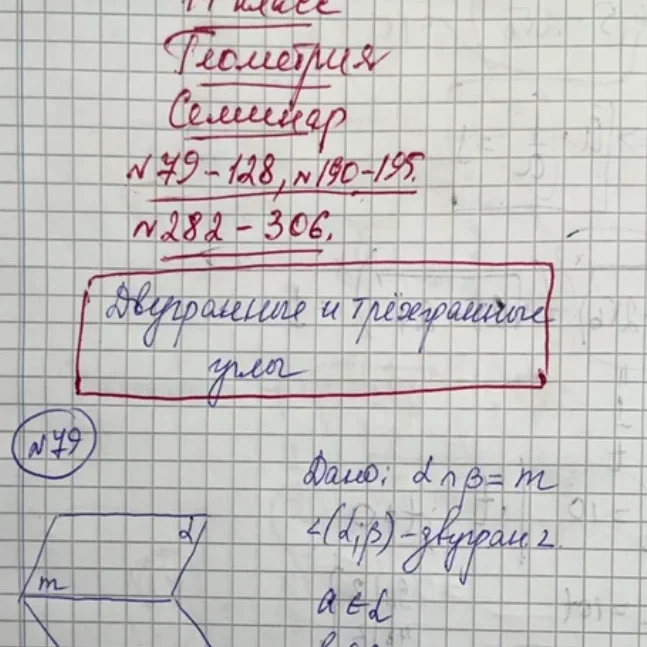 11 класс
Геометрия
Семинар
№79-128, №190-195.
№282-306.
Двугранные и трёхгранные
углы
№79
Дано: α∩β=m
∠(α;β)-двугран∠.
α
m
a∈α